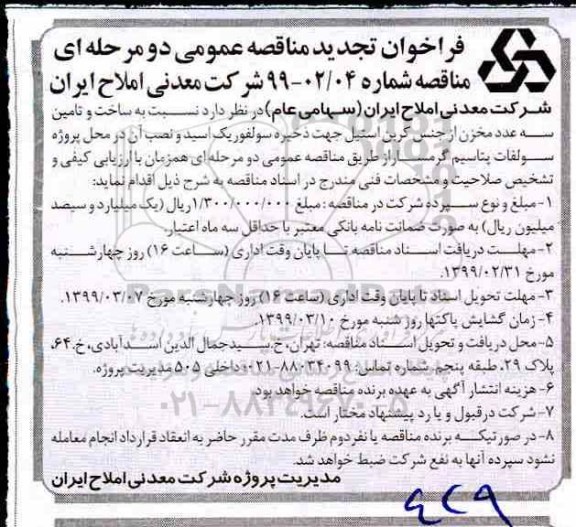 فراخوان تجدید مناقصه عمومی دو مرحله ای
مناقصه شماره ۰۲/۰۴-۹۹ شرکت معدنی املاح ایران
شرکت معدنی املاح ایران (سهامی عام) در نظر دارد نسبت به ساخت و تامین
سه عدد مخزن از جنس کربن استیل جهت ذخیره سولفوریک اسید و نصب آن در محل پروژه
سولفات پتاسیم گرمسار از طریق مناقصه عمومی دو مرحله ای همزمان با ارزیابی کیفی و
تشخیص صلاحیت و مشخصات فنی مندرج در اسناد مناقصه به شرح ذیل اقدام نماید:
۱-مبلغ و نوع سپرده شرکت در مناقصه : مبلغ ۱/۳۰۰/۰۰۰/۰۰۰ ریال (یک میلیارد و سیصد
میلیون ریال) به صورت ضمانت نامه بانکی معتبر با حداقل سه ماه اعتبار.
۲-مهلت دریافت اسناد مناقصه تا پایان وقت اداری (ساعت ۱۶) روز چهارشنبه
مورخ ۱۳۹۹/۰۲/۳۱.
۳-مهلت تحویل اسناد تا پایان وقت اداری (ساعت ۱۶) روز چهارشنبه مورخ ۱۳۹۹/۰۳/۰۷.
۴-زمان گشایش پاکتها روز شنبه مورخ ۱۳۹۹/۰۳/۱۰.
۵-محل دریافت و تحویل اسناد مناقصه: تهران، خ. سیدجمال الدین اسدآبادی، خ. ۶۴،
پلاک ۲۹، طبقه پنجم. شماره تماس: ۸۸۰۳۴۰۹۹-۰۲۱ داخلی ۵۰۵ مدیریت پروژه.
۶-هزینه انتشار آگهی به عهده برنده مناقصه خواهد بود.
۷-شرکت در قبول و یا رد پیشنهاد مختار است.
۸-در صورتیکه برنده مناقصه یا نفر دوم ظرف مدت مقرر حاضر به انعقاد قرارداد انجام معامله
نشود سپرده آنها به نفع شرکت ضبط خواهد شد.
مدیریت پروژه شرکت معدنی املاح ایران